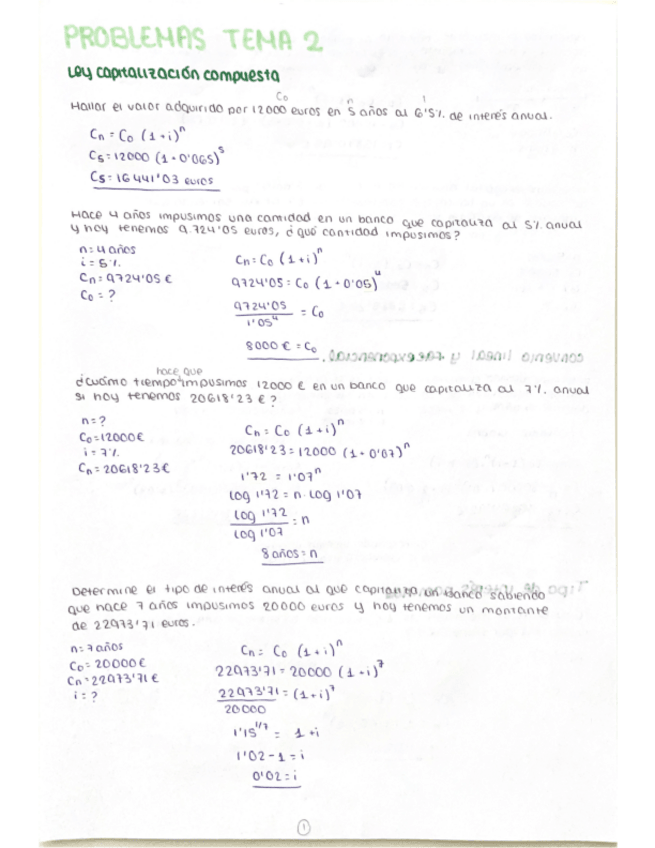 PROBLEMAS TEMA 2
Ley capitalización compuesta
C₀ n i
Hallar el valor adquirido por 12000 euros en 5 años al 6'5% de interés anual.
Cn = C₀ (1+i)ⁿ
C₅ = 12000 (1+0'065)⁵
C₅ = 16441'03 euros
Hace 4 años impusimos una cantidad en un banco que capitaliza al 5% anual
y hoy tenemos 9.724'05 euros, ¿qué cantidad impusimos?
n = 4 años
i = 5%
Cn = 9724'05 €
C₀ = ?
Cn = C₀ (1+i)ⁿ
9724'05 = C₀ (1+0'05)⁴
9724'05
1'05⁴
= C₀
8000 € = C₀
hace que
¿Cuánto tiempo impusimos 12000 € en un banco que capitaliza al 7% anual
si hoy tenemos 20618'23 €?
n = ?
C₀ = 12000 €
i = 7%
Cn = 20618'23 €
Cn = C₀ (1+i)ⁿ
20618'23 = 12000 (1+0'07)ⁿ
1'72 = 1'07ⁿ
log 1'72 = n · log 1'07
log 1'72
log 1'07
= n
8 años = n
Determine el tipo de interés anual al que capitaliza un banco sabiendo
que hace 7 años impusimos 20000 euros y hoy tenemos un montante
de 22973'71 euros.
n = 7 años
C₀ = 20000 €
Cn = 22973'71 €
i = ?
Cn = C₀ (1+i)ⁿ
22973'71 = 20000 (1+i)⁷
22973'71 = (1+i)⁷
20000
1'15^1/7 = 1+i
1'02 - 1 = i
0'02 = i
1